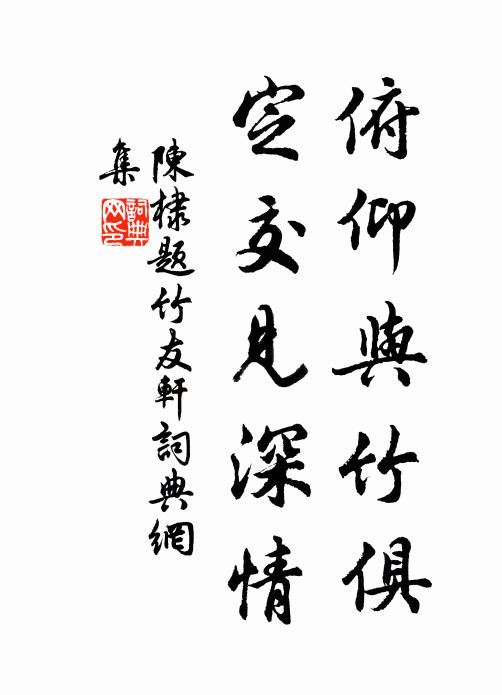 俯仰與竹俱
定交見深情
陳棣題竹友軒詞典網
集
詞典
网印